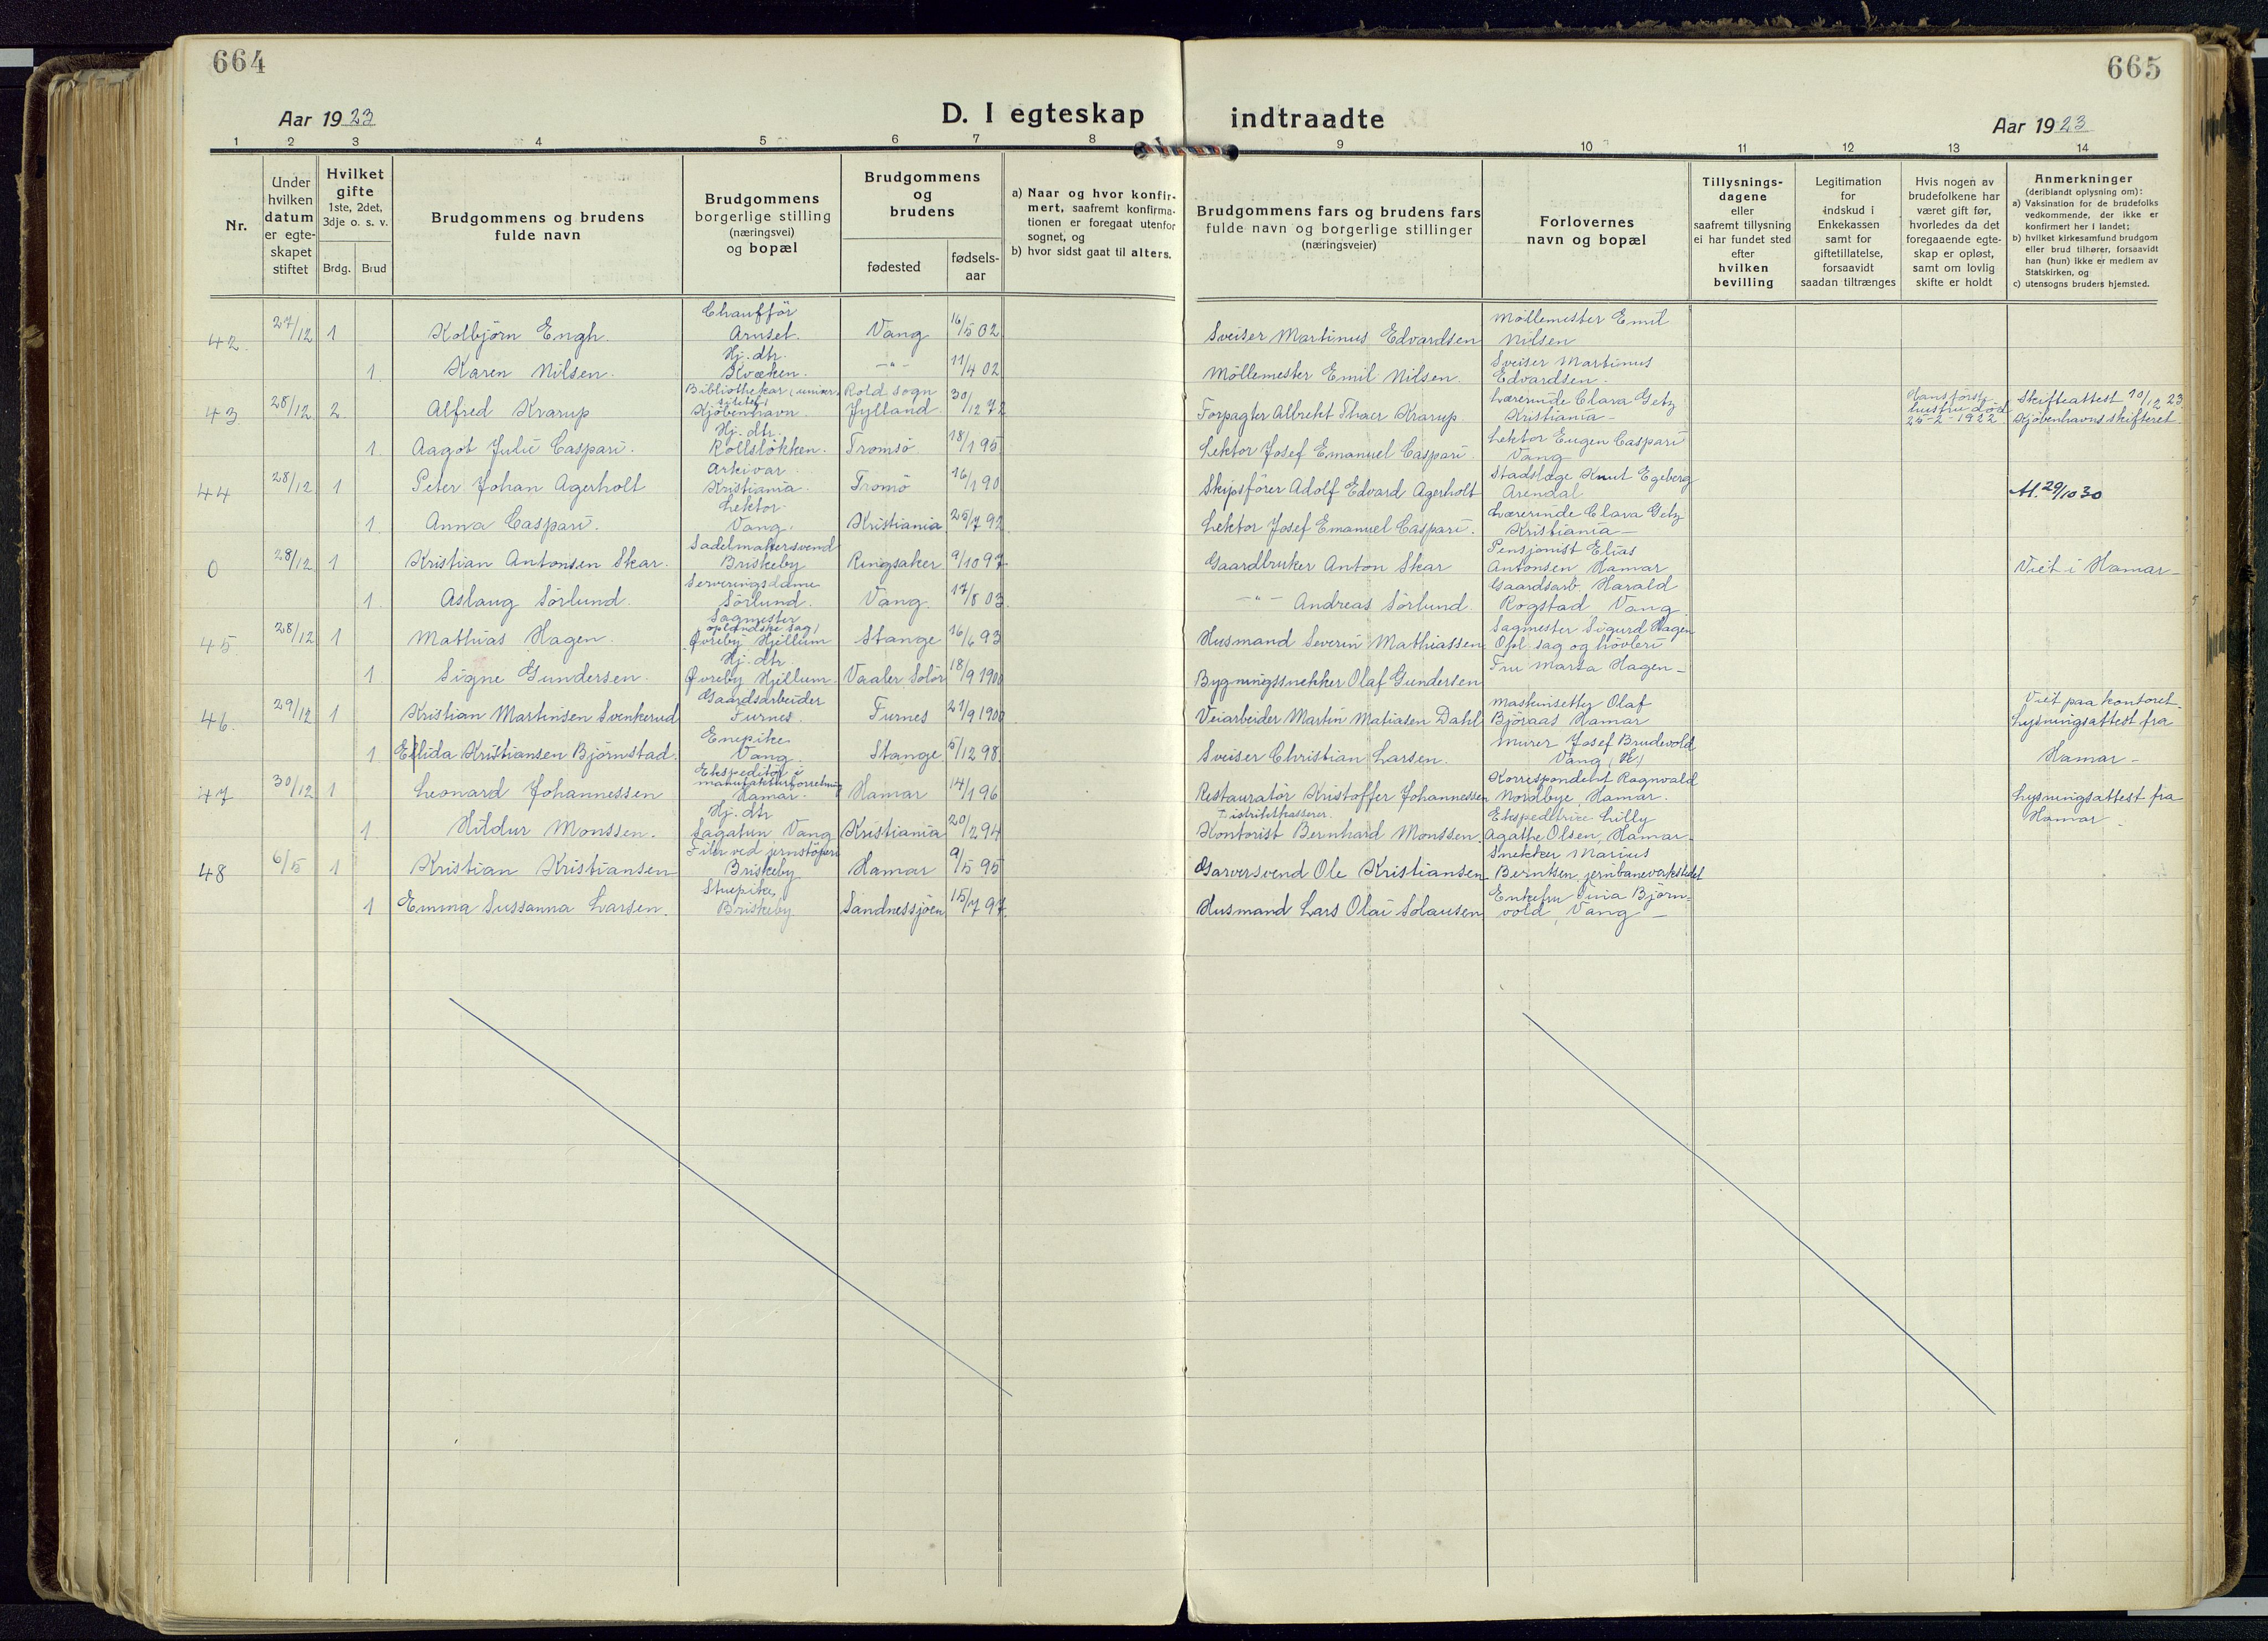 664
665
Aar 1923
D. I egteskap indtraadte
Aar 1923
1 2 3 4 5 6 7 8 9 10 11 12 13 14
Nr.
Under hvilken datum er egte-skapet stiftet
Hvilket gifte 1ste, 2det, 3dje o. s. v.
Brdg. Brud
Brudgommens og brudens fulde navn
Brudgommens borgerlige stilling (næringsvei) og bopæl
Brudgommens og brudens
fødested
fødsels-aar
a) Naar og hvor konfir-mert, saafremt konfirma-tionen er foregaat utenfor sognet, og
b) hvor sidst gaat til alters.
Brudgommens fars og brudens fars fulde navn og borgerlige stillinger (næringsveier)
Forlovernes navn og bopæl
Tillysnings-dagene eller saafremt tillysning ei har fundet sted efter hvilken bevilling
Legitimation for indskud i Enkekassen samt for giftetillatelse, forsaavidt saadan tiltrænges
Hvis nogen av brudefolkene har været gift før, hvorledes da det foregaaende egte-skap er opløst, samt om lovlig skifte er holdt
Anmerkninger (deriblandt oplysning om):
a) Vaksination for de brudefolks vedkommende, der ikke er konfirmert her i landet;
b) hvilket kirkesamfund brudgom eller brud tilhører, forsaavidt han (hun) ikke er medlem av Statskirken, og
c) utensogns bruders hjemsted.
42. 27/12 1 Kolbjörn Engh. Chaufför Arnset. Vang 16/5 02 Sveiser Martinus Edvardsen Möllemester Emil Nilsen
1. Karen Nilsen. Hj. dtr. Kvæken. -"- 11/4 02 Möllemester Emil Nilsen. Sveiser Martinus Edvardsen.
43. 28/12 2. Alfred Krarup Bibliothekar (univer-sitetet) Kjöbenhavn Rold sogn Jylland 30/12 72 Forpagter Albrekt Thaer Krarup. Lærerinde Clara Getz Kristiania - Hans förste hustru död 25-2-1922 Skifteattest 10/12 23 Kjöbenhavns skifteret.
1. Aagot Julie Caspari. Hj. dtr. Kollslökken. Tromsö 18/1 95 Lektor Josef Emanuel Caspari. Lektor Eugen Caspari Vang
44 28/12 1 Peter Johan Agerholt Arkivar Kristiania. Tromö 16/1 90 Skipsförer Adolf Edvard Agerholt Stadslæge Knut Egeberg Arendal At. 29/10 30
1. Anna Caspari. Lektor. Vang. Kristiania 25/7 92 Lektor Josef Emanuel Caspari. Lærerinde Clara Getz Kristiania -
0 28/12 1 Kristian Antonsen Skar. Sadelmakersvend Briskeby Ringsaker 9/10 97 Gaardbruker Anton Skar Pensjonist Elias Antonsen Hamar Viet i Hamar -
1. Aslaug Sörlund. Serveringsdame Sörlund. Vang. 17/8 03 -"- Andreas Sörlund. Gaardsarb. Harald Rogstad Vang.
45. 28/12 1 Mathias Hagen. Sagmester oplandske sag, Øvreby Hjellum Stange 16/6 93 Husmand Severin Mathiassen Sagmester Sigurd Hagen Opl. sag og hövleri
1 Signe Gundersen. Hj. dtr. Øvreby Hjellum. Vaaler Solör 18/9 1900 Bygningssnekker Olaf Gundersen Fru Marta Hagen -
46. 29/12 1 Kristian Martinsen Svenkerud Gaardsarbeider Furnes. Furnes 21/9 1900 Veiarbeider Martin Matiasen Dahl Maskinsetter Olaf Björaas Hamar Viet paa kontoret. Lysningsattest fra Hamar -
1 Ellida Kristiansen Björnstad. Enepike Vang. Stange 5/12 98. Sveiser Christian Larsen. Murer Josef Brudevold Vang
47 30/12 1 Leonard Johannessen Ekspeditör i manufakturforretning Hamar. Hamar 14/1 96 Restauratör Kristoffer Johannessen Korrespondent Ragnvald Nordbye, Hamar. Lysningsattest fra Hamar -
1. Hildur Monssen. Hj. dtr Sagatun Vang Kristiania 20/2 94 Distriktkasserer. Kontorist Bernhard Monssen. Ekspeditrice Lilly Agathe Olsen, Hamar.
48 6/5 1 Kristian Kristiansen Filer ved jernstöperi Briskeby Hamar 9/5 95 Garversvend Ole Kristiansen Snekker Marius Berntsen, jernbaneverkstedet
1 Emma Sussanna Larsen. Stuepike, Briskeby Sandnessjöen 15/7 97 Husmand Lars Olai Solausen Enkefru Björn-vold, Vang -